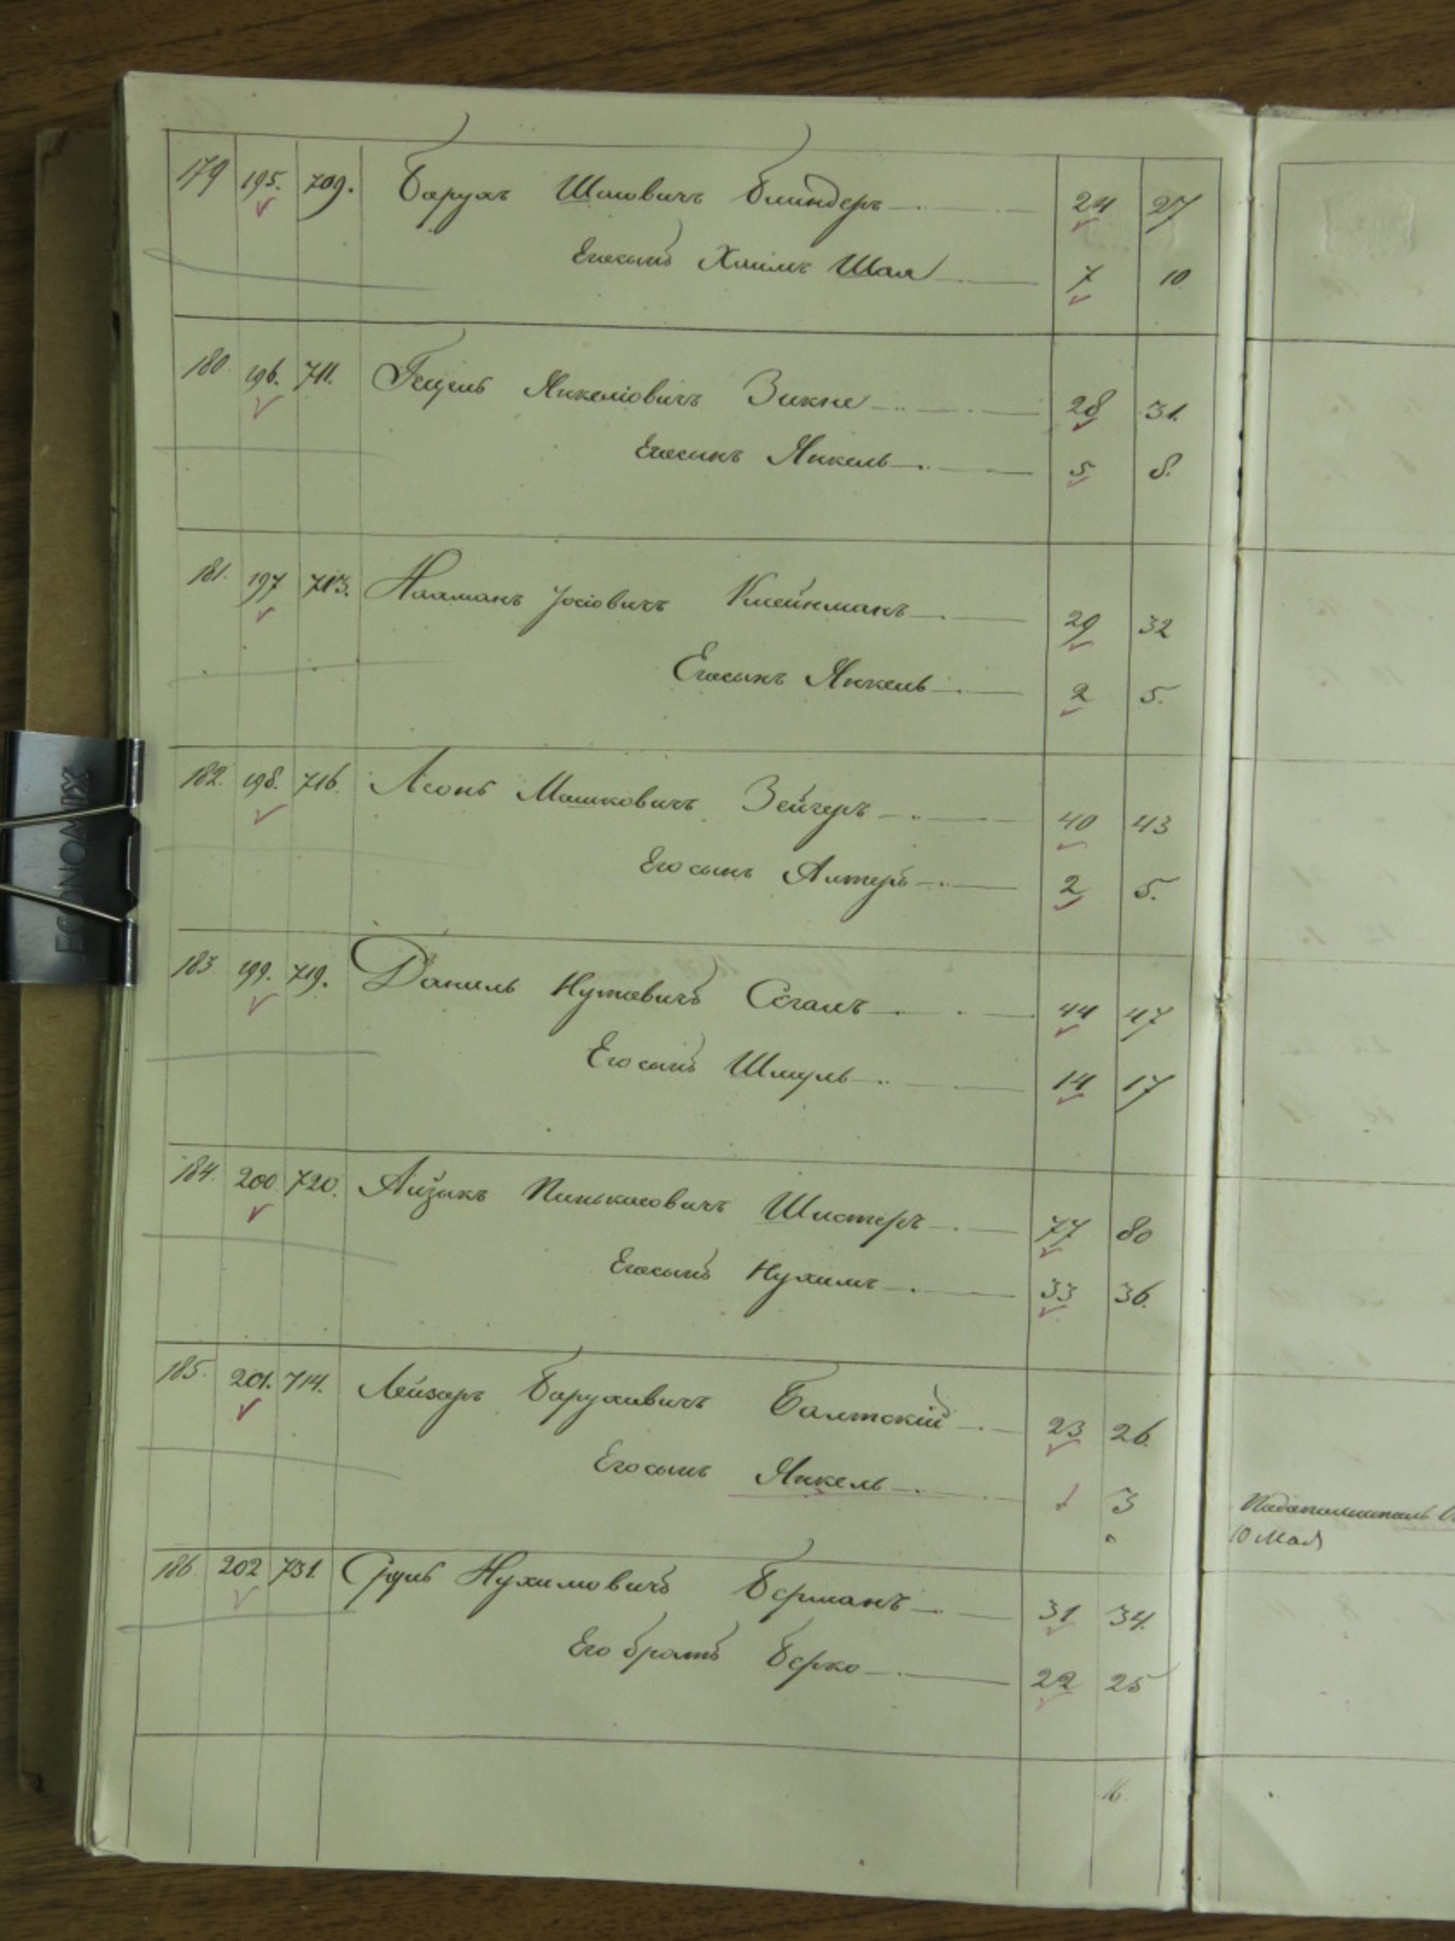 179 195. 709. Барухъ Шаевичъ Блиндеръ 24 27
Его сынъ Хаимъ Шая 7 10
180 196. 711. Гецель Янкеліовичъ Зикне 28 31.
Его сынъ Янкель 5 8.
181. 197 713. Нахманъ Іосіовичъ Клейнманъ 29 32
Его сынъ Янкель 2 5.
182. 198. 716. Леонъ Мошковичъ Зейгеръ 40 43
Его сынъ Алтеръ 2 5.
183 199. 719. Даниль Нутовичъ Сегалъ 44 47
Его сынъ Шмуль 14 17
184. 200 720. Айзикъ Пинькасовичъ Шистеръ 77 80
Его сынъ Нухимъ 33 36.
185. 201. 714. Лейзеръ Баруховичъ Балтскій 23 26.
Его сынъ Янкель 3
10 Мая
186. 202 731. Сруль Нухимовичъ Берманъ 31 34.
Его братъ Берко 22 25
16.
ECONOMIX